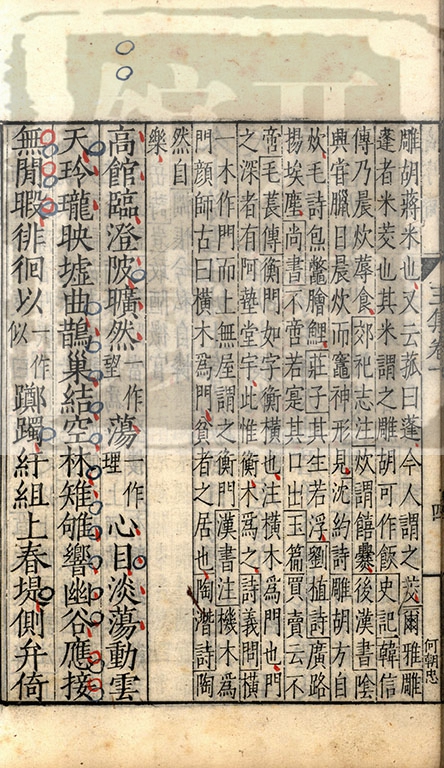 雕胡蔣米也又云菰曰蓬今人謂之茭爾雅雕
蓬者米茭也其米謂之雕胡可作飯史記韓信
傳乃晨炊蓐食郊祀志注炊謂饎爨後漢書陰
興嘗臘日晨炊而竈神形見沈約詩雕胡方自
炊毛詩炰鱉膾鯉莊子其生若浮劉楨詩廣路
揚埃塵尚書不啻若寔其口出玉篇買賣云不
啻毛萇傳衡門如字衡橫也注橫木爲門也門
之深者有阿塾堂宇此惟衡木爲之詩義問橫
一木作門而上無屋謂之衡門漢書注橫木爲
門顏師古曰橫木爲門貧者之居也陶潛詩陶
然自
樂
高館臨澄陂曠然一作望蕩一作理心目淡蕩動雲
天玲瓏映墟曲鵲巢結空林雉雊響幽谷應接
無閒暇徘徊以一作似躑躅紆組上春堤側弁倚
四
何朝忠